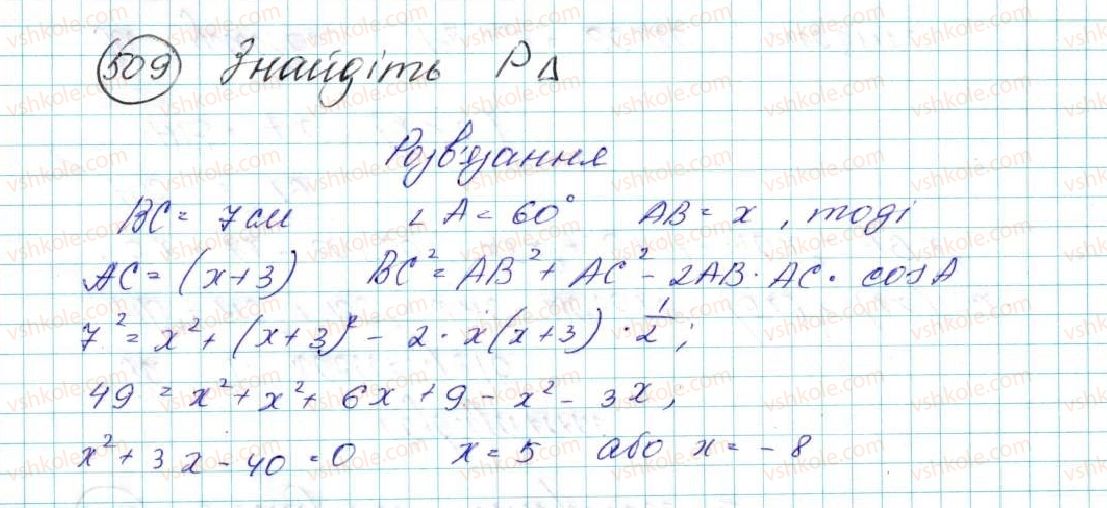 509 Знайдіть P Δ
Розв'язання
BC = 7 см ∠ A = 60° AB = x , тоді
AC = (x+3) BC² = AB² + AC² - 2AB · AC · cos A
7² = x² + (x+3)² - 2 · x(x+3) · 1/2 ;
49 = x² + x² + 6x + 9 - x² - 3x ;
x² + 3x - 40 = 0 x = 5 або x = - 8